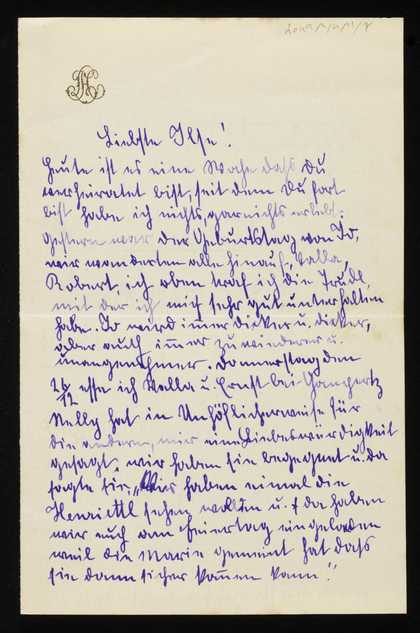 Liebste Ilse!
Heute ist es eine Woche dass Du
verheiratet bist, seit dem Du fort
bist habe ich nichts, garnichts erlebt.
Gestern war der Geburtstag von Jo,
wir wanderten alle hinauf, Valla,
Robert, ich oben traf ich die Trudl,
mit der ich mich sehr gut unterhalten
habe. Jo wird imer dicker u. dicker,
aber auch imer zuwiederer u.
unangenehmer. Donnerstag den
26/12 esse ich Valla u. Ernst bei
Nelly hat in Unhöflicherweise für
die anderen, mir eine Liebeswürdigkeit
gesagt, wir haben sie begegnet u. da
sagte sie: „Wir haben eimal die
Henriettl sehen wollen u. da haben
wir euch am Feiertag eingeladen
weil die Marie gemeint hat dass
sie dann sicher kommen kann."